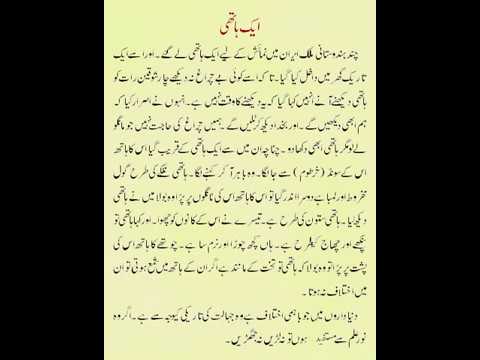 ایک ہاتھی
چند ہندوستانی ملک ایران میں نمائش کے لیے ایک ہاتھی لے گئے ۔ اور اسے ایک
تاریک گھر میں داخل کیا گیا ۔ تا کہ اسے کوئی بے چراغ نہ دیکھے چار شوقین رات کو
ہاتھی دیکھنے آئے انہیں کہا گیا کہ یہ دیکھنے کا وقت نہیں ہے ۔ انہوں نے اصرار کیا کہ
ہم ابھی دیکھیں گے ۔ اور بخدا دیکھ کر ٹلیں گے ۔ ہمیں چراغ کی حاجت نہیں جو مانگو
لے لو مگر ہاتھی ابھی دکھا دو ۔ چناچہ ان میں سے ایک ہاتھی کے قریب گیا اس کا ہاتھ
اس کے سونڈ ( خرطوم ) سے جا لگا ۔ وہ باہر آ کر کہنے لگا ۔ ہاتھی نلکے کی طرح گول
مخروط اور لمبا ہے دوسرا اندر گیا تو اس کا ہاتھ اس کی ٹانگوں پر پڑا وہ بولا میں نے ہاتھی
دیکھ لیا ۔ ہاتھی ستون کی طرح ہے ۔ تیسرے نے اس کے کانوں کو چھوا ۔ اور کہا ہاتھی تو
پنکھے اور چھاج کیطرح ہے ۔ ہاں کچھ چوڑا اور نرم سا ہے ۔ چوتھے کا ہاتھ اس کی
پشت پر پڑا تو وہ بولا کہ ہاتھی تو تخت کے مانند ہے اگر ان کے ہاتھ میں شمع ہوتی تو ان میں
اختلاف نہ ہوتا ۔
دنیا داروں میں جو باہمی اختلاف ہے وہ جہالت کی تاریکی کیوجہ سے ہے ۔ اگر وہ
نور علم سے مستفید ہوں تو نہ لڑیں نہ جھگڑیں ۔